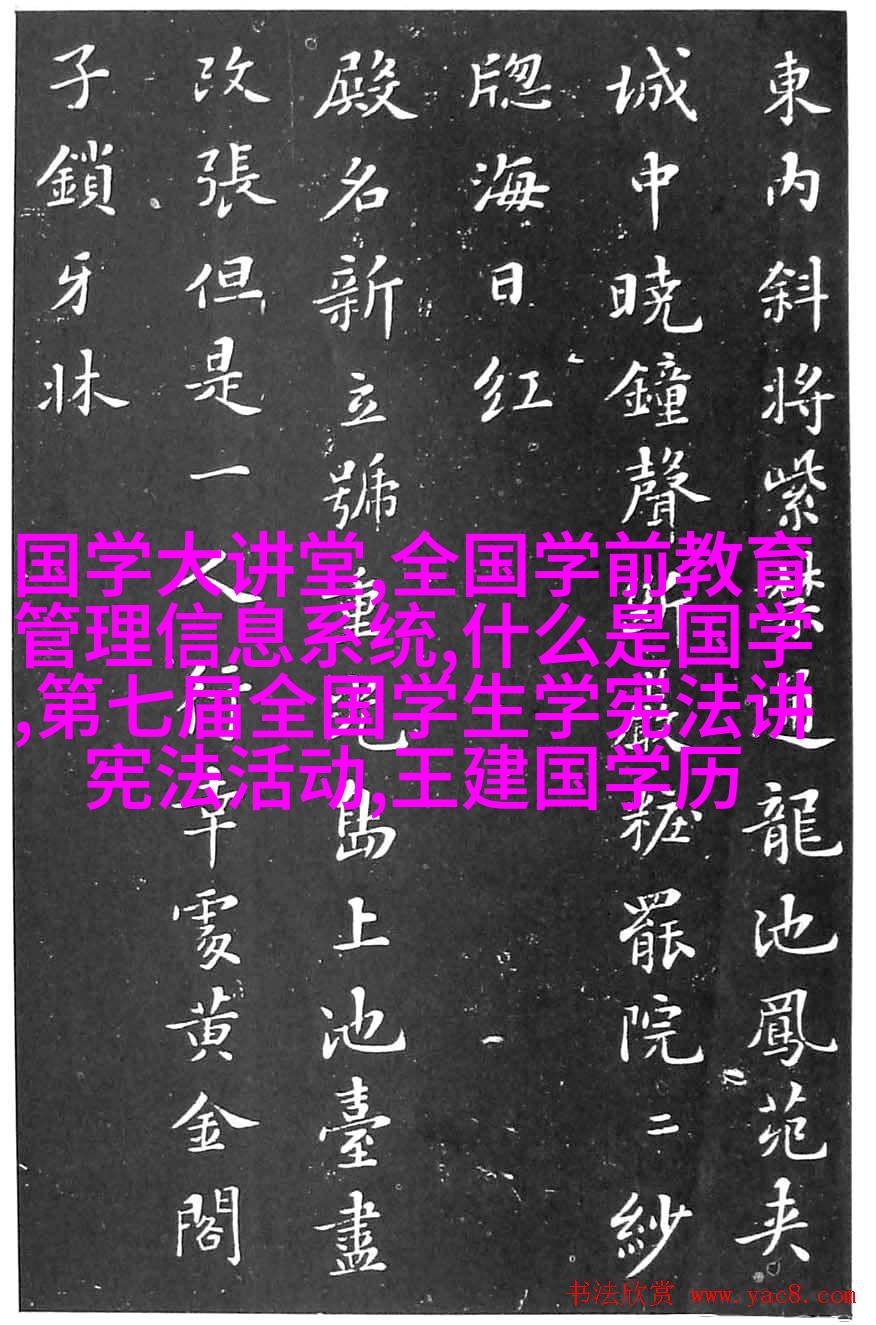 東内斜將紫禁通龍池鳳苑夾
城中曉鐘聲斷嚴粧罷院二紗
牕海日红
殿名新立號重光島上池臺盡
改張但是一人行幸處黄金閤
子鎖牙牀
国学大讲堂,全国学前教育
管理信息系统,什么是国学
,第七届全国学生学宪法讲
宪法活动,王建国学历
书法欣赏 www.yac8.com